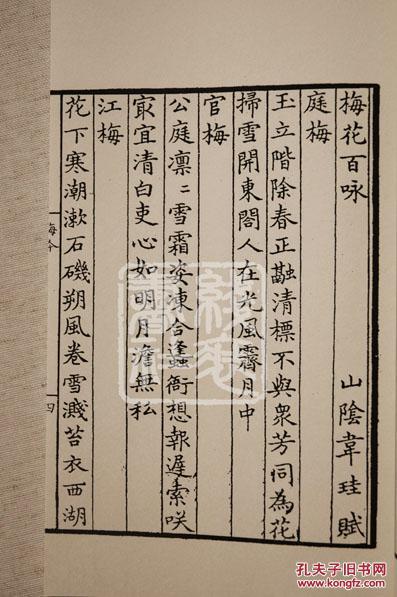 梅花百咏
山陰韋珪賦
庭梅
玉立階除春正融清標不與衆芳同為花
掃雪開東閤人在光風霽月中
官梅
公庭凛〻雪霜姿凍合蠭衙想報遲索咲
㝡宜清白吏心如明月澹無私
江梅
花下寒潮漱石磯朔風卷雪濺苔衣西湖
四
孔夫子旧书网
www.kongfz.com